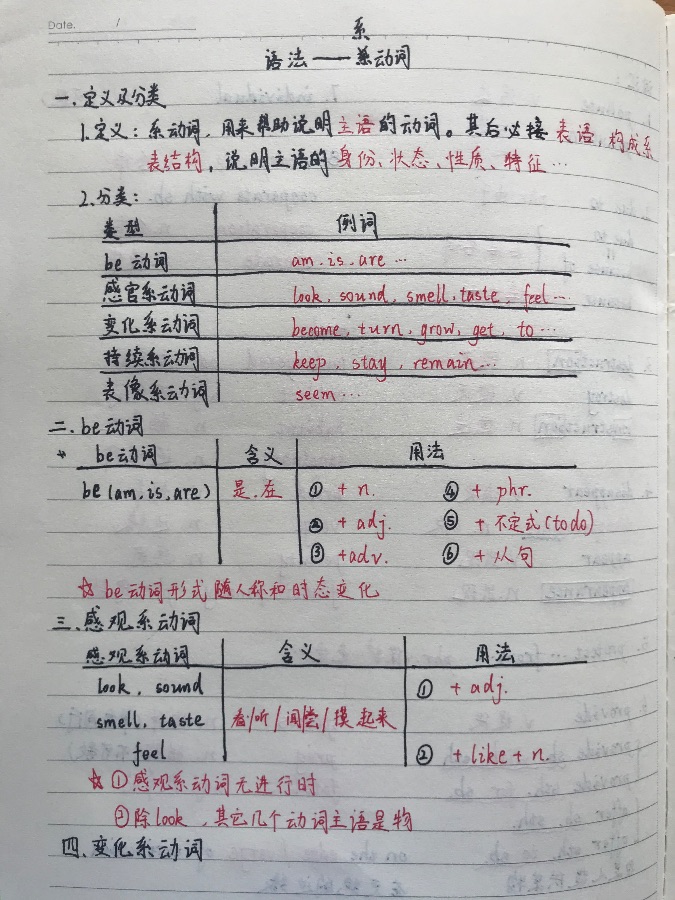 Date. /
系
语法——兼动词
一.定义及分类
1.定义：系动词，用来帮助说明主语的动词。其后必接表语，构成系
表结构，说明主语的身份、状态、性质、特征…
2.分类：
类型 例词
be 动词 am, is, are …
感官系动词 look, sound, smell, taste, feel …
变化系动词 become, turn, grow, get, to …
持续系动词 keep, stay, remain…
表像系动词 seem …
二.be动词
be动词 含义 用法
be (am, is, are) 是.在 ① + n. ④ + phr.
② + adj. ⑤ + 不定式(to do)
③ +adv. ⑥ + 从句
☆ be动词形式随人称和时态变化
三.感观系动词
感观系动词 含义 用法
look, sound ① + adj.
smell, taste 看/听/闻尝/摸起来
feel ② +like+n.
☆ ①感观系动词无进行时
②除look，其它几个动词主语是物
四.变化系动词